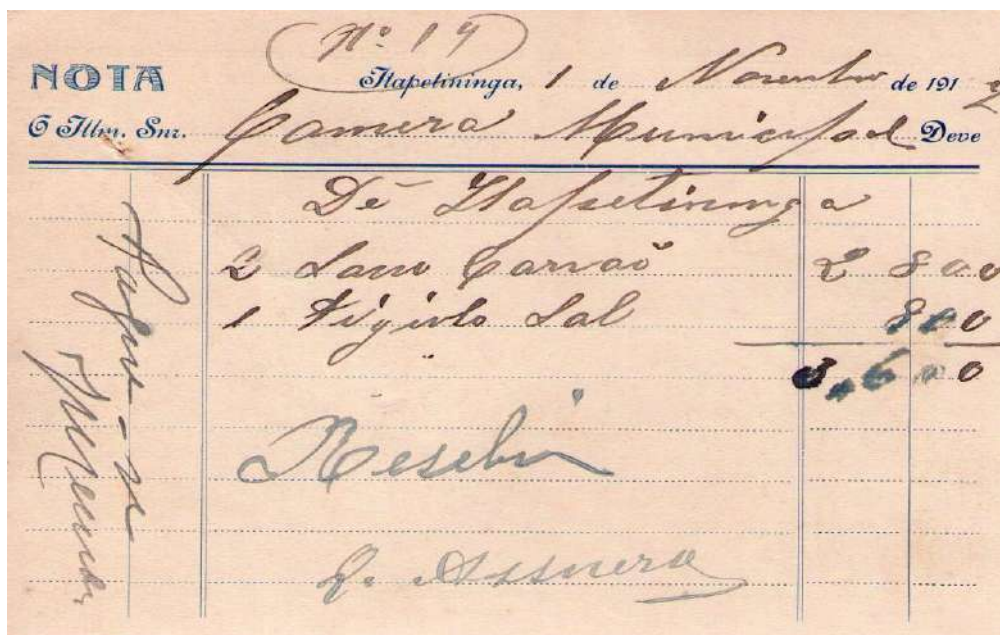 Nº 14
NOTA Itapetininga, 1 de Novembro de 191
O Illm. Snr. Camera Municipal Deve
De Itapetininga
2 Saco Carvaõ 2 800
1 Tijolo Sal 800
3,600
Resebi
Pague-se